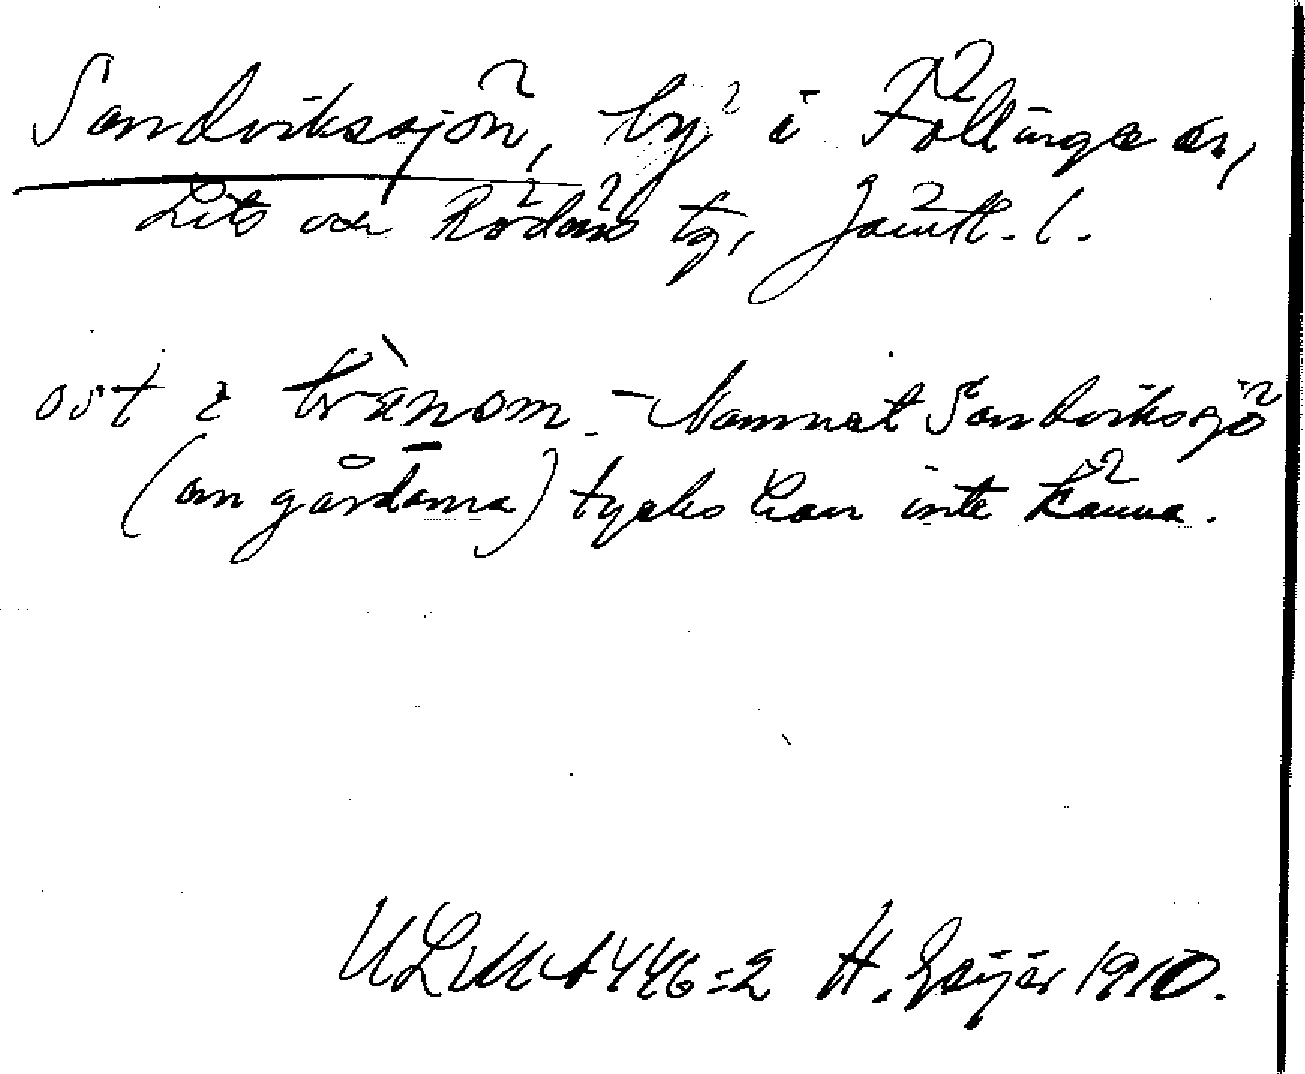 Sandviksjön, by i Föllinge sn,
Lits och Rödöns tg, Jämtl. l.
ost i brànom. - Namnet Sandviksjö
(om gårdarna) tycks han inte känna.
ULMA 446:2 H. Geijer 1910.